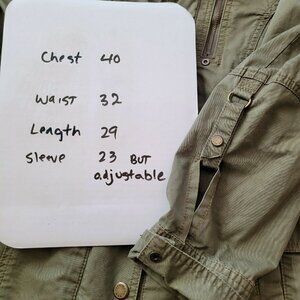 Chest 40
Waist 32
Length 29
Sleeve 23 BUT
adjustable